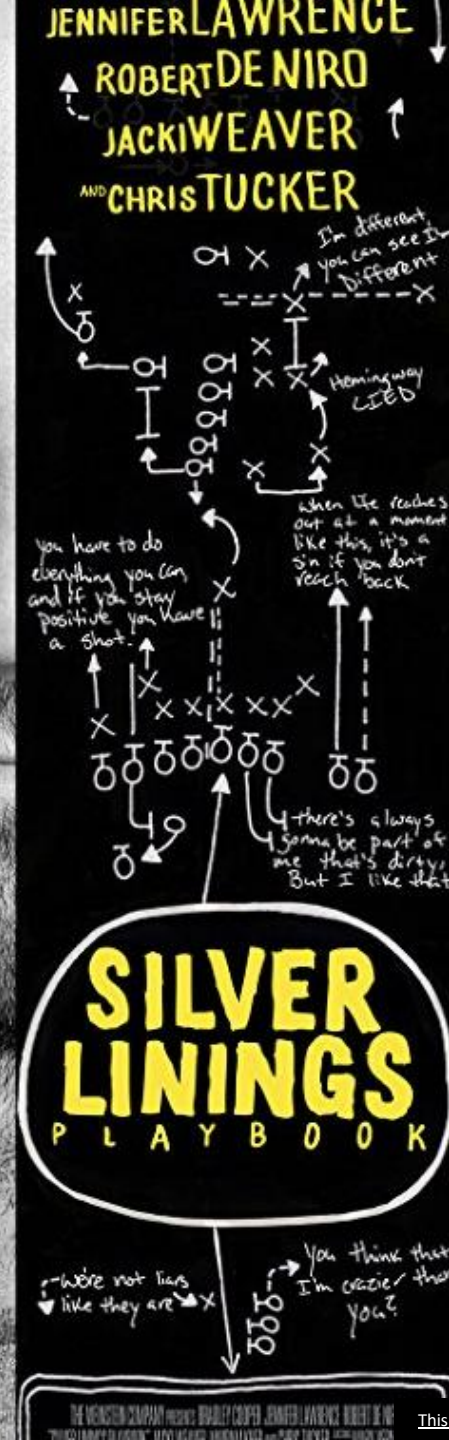 JENNIFER LAWRENCE
ROBERT DE NIRO
JACKI WEAVER
AND CHRIS TUCKER
I'm different,
you can see I'm
Different
Hemingway
LIED
when life reaches
out at a moment
like this, it's a
sin if you don't
reach back
you have to do
everything you can,
and if you stay
positive you have
a shot.
there's always
gonna be part of
me that's dirty,
But I like that
SILVER
LININGS
PLAYBOOK
we're not liars
like they are
You think that
I'm crazier than
you?
THE WEINSTEIN COMPANY PRESENTS BRADLEY COOPER JENNIFER LAWRENCE ROBERT DE NI
This